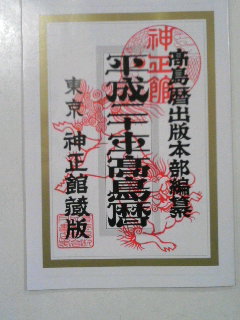 神正館
髙島暦出版本部編纂
平成二十年髙島暦
東京 神正館藏版